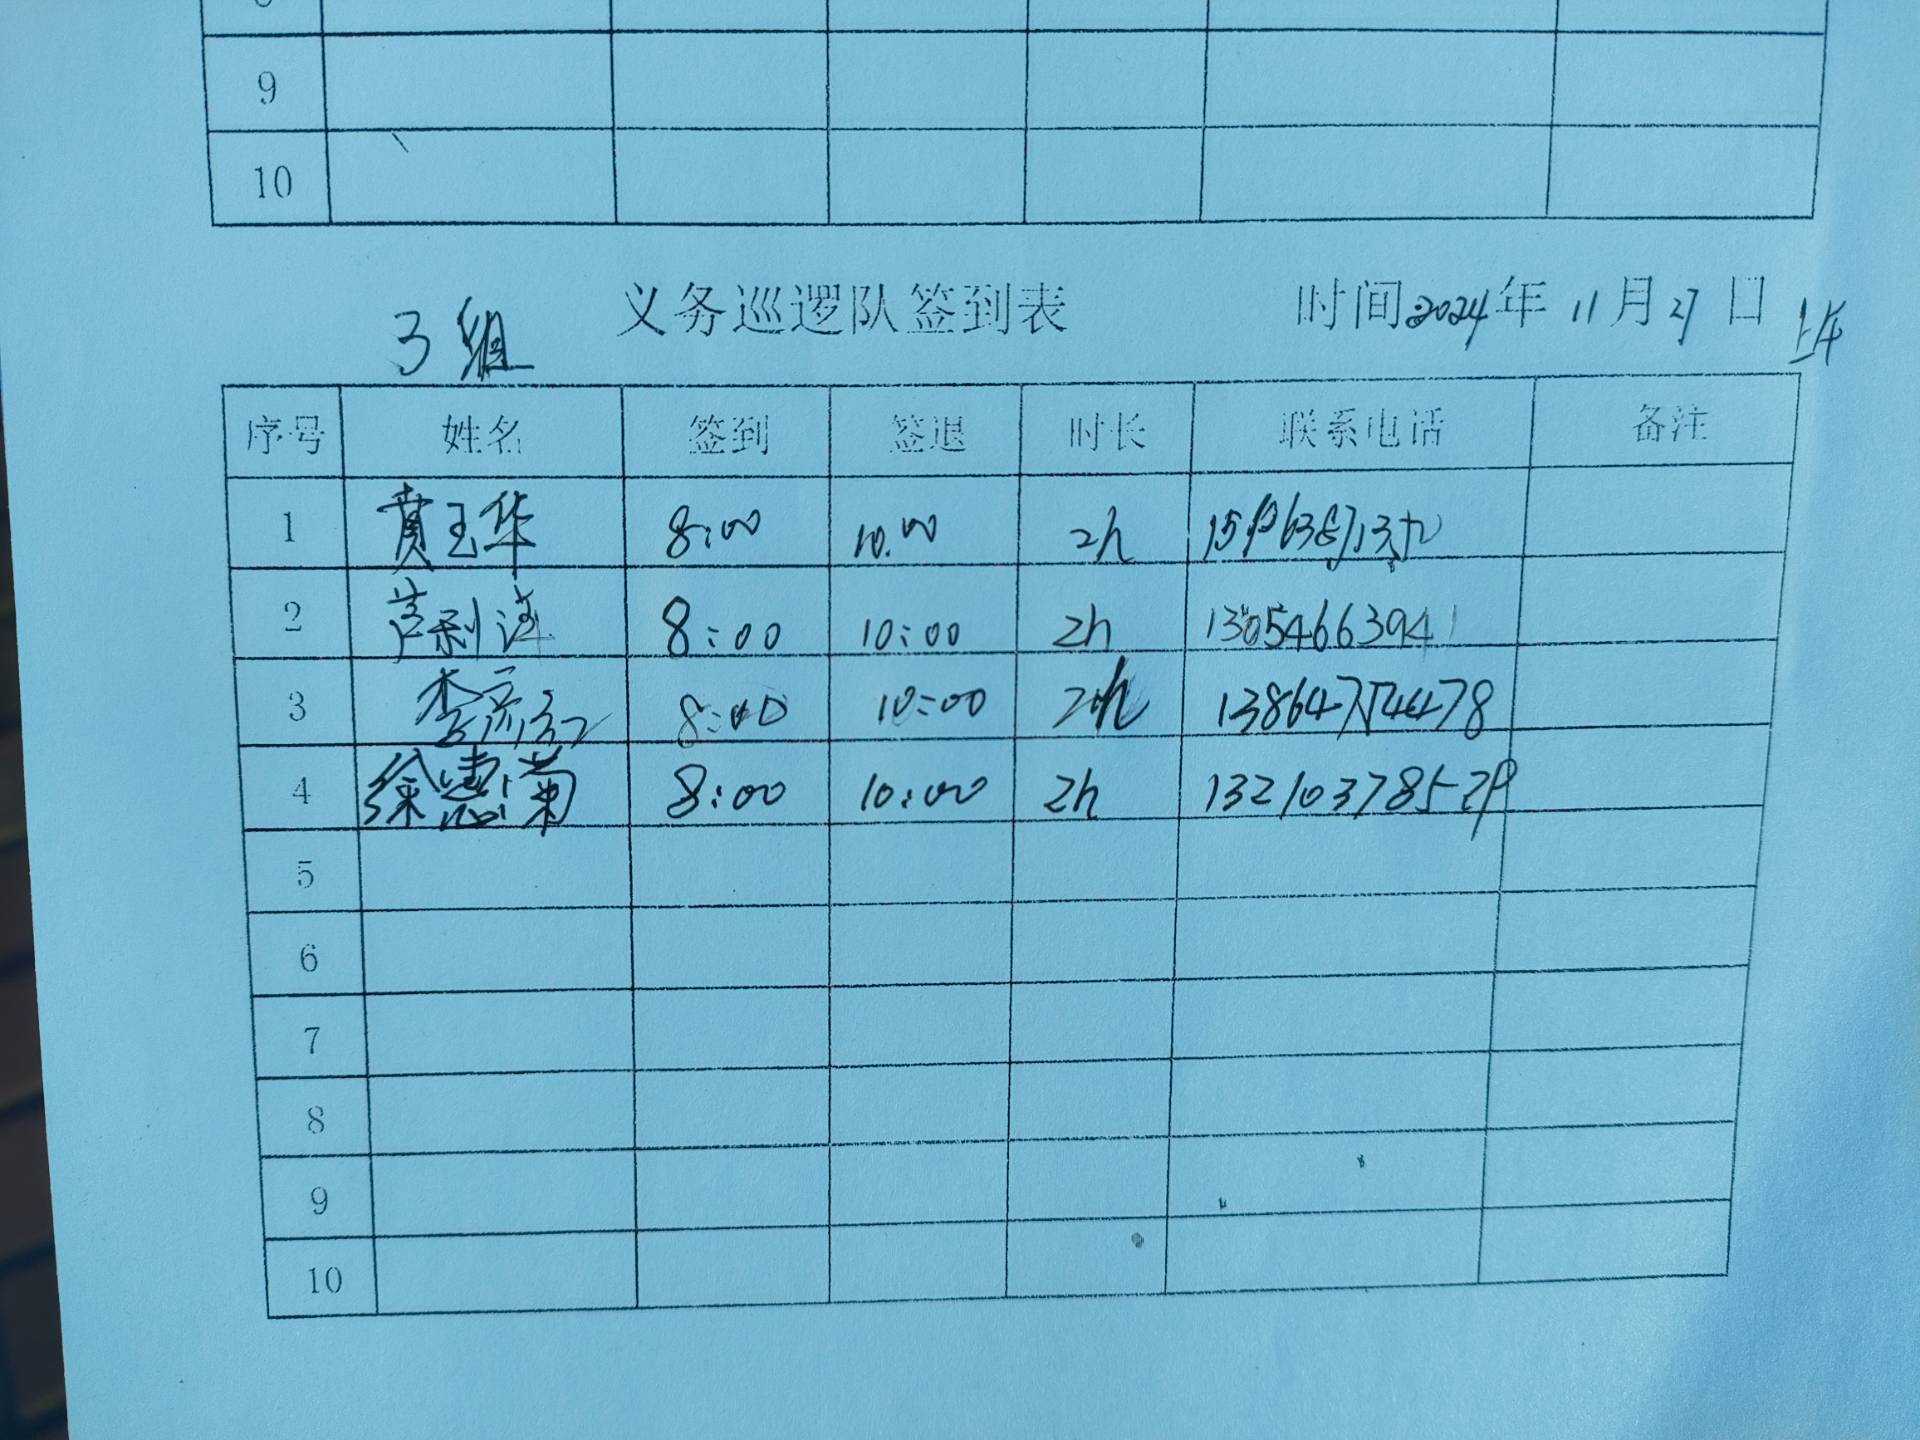 9
10
3组 义务巡逻队签到表 时间2024年11月27日 上午
序号 姓名 签到 签退 时长 联系电话 备注
1 黄玉华 8:00 10.00 2h
2 8:00 10:00 2h 13054663941
3 李 8:00 10:00 2h 13864754478
4 徐惠菊 8:00 10:00 2h 13210378529
5
6
7
8
9
10